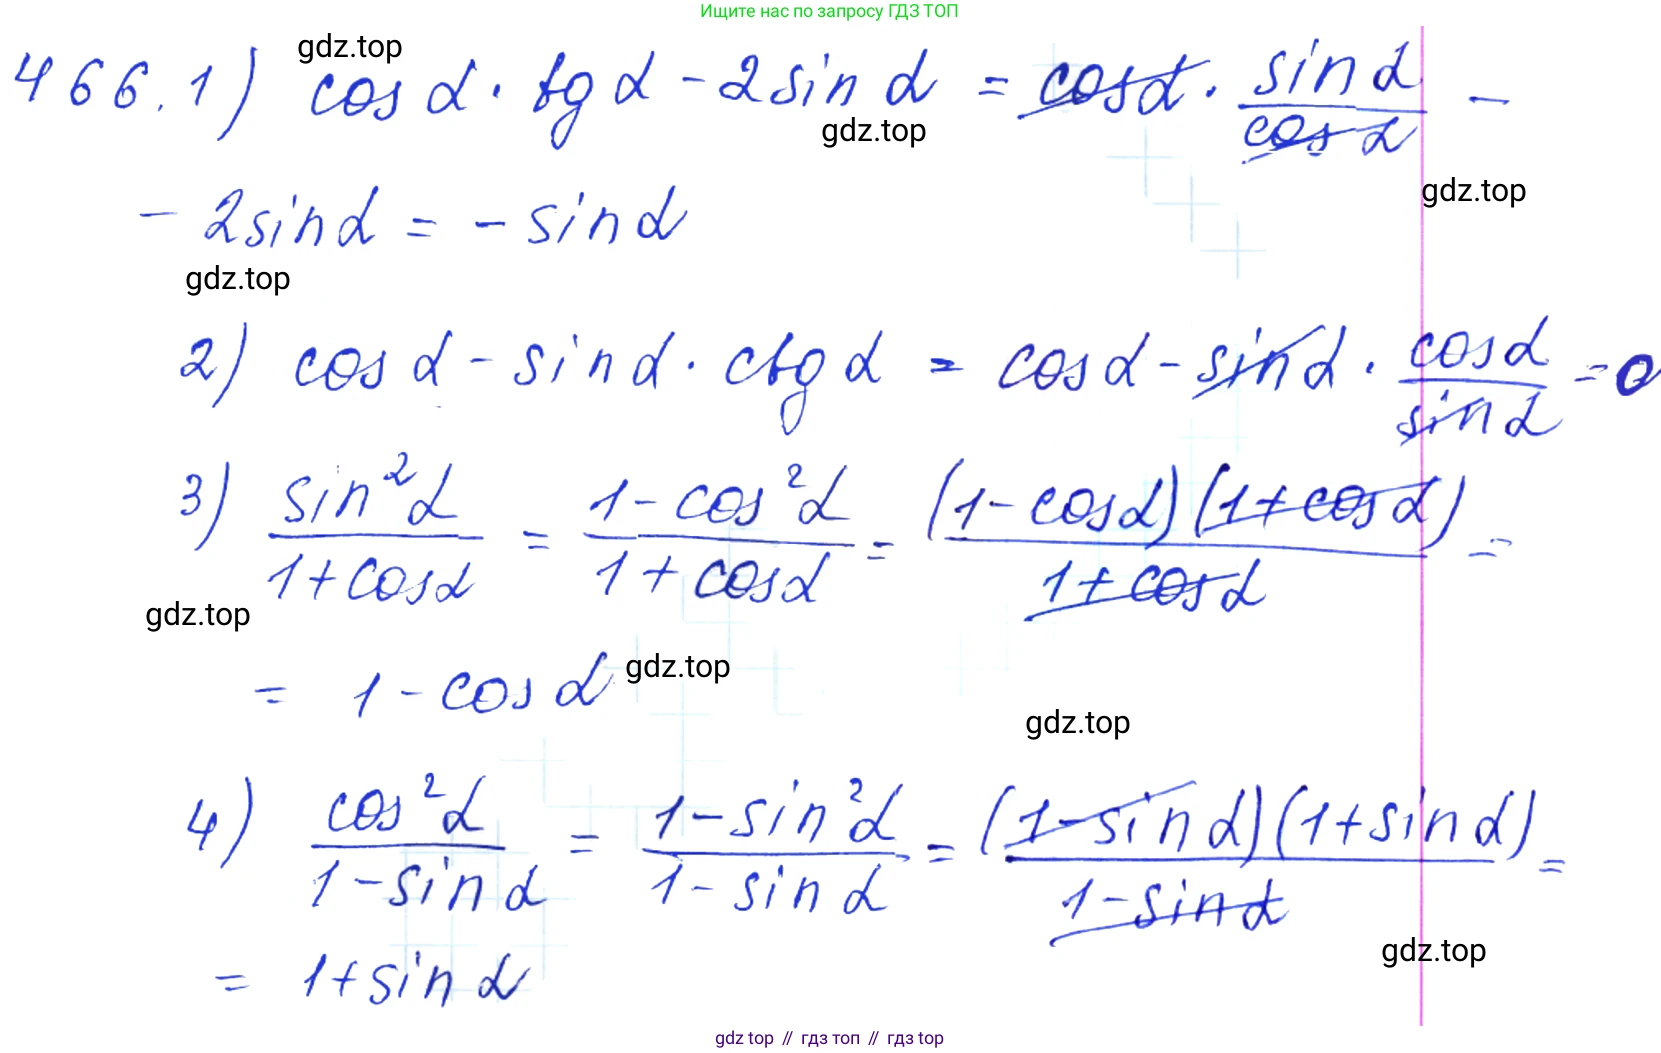 Ищите нас по запросу ГДЗ ТОП
gdz.top
466. 1) cos α · tg α - 2 sin α = cos α · sin α / cos α -
gdz.top
gdz.top
- 2 sin α = - sin α
gdz.top
2) cos α - sin α · ctg α = cos α - sin α · cos α / sin α = 0
3) sin² α / 1 + cos α = 1 - cos² α / 1 + cos α = (1 - cos α)(1 + cos α) / 1 + cos α =
gdz.top
= 1 - cos α
gdz.top
gdz.top
4) cos² α / 1 - sin α = 1 - sin² α / 1 - sin α = (1 - sin α)(1 + sin α) / 1 - sin α =
gdz.top
= 1 + sin α
gdz top // гдз топ // гдз top